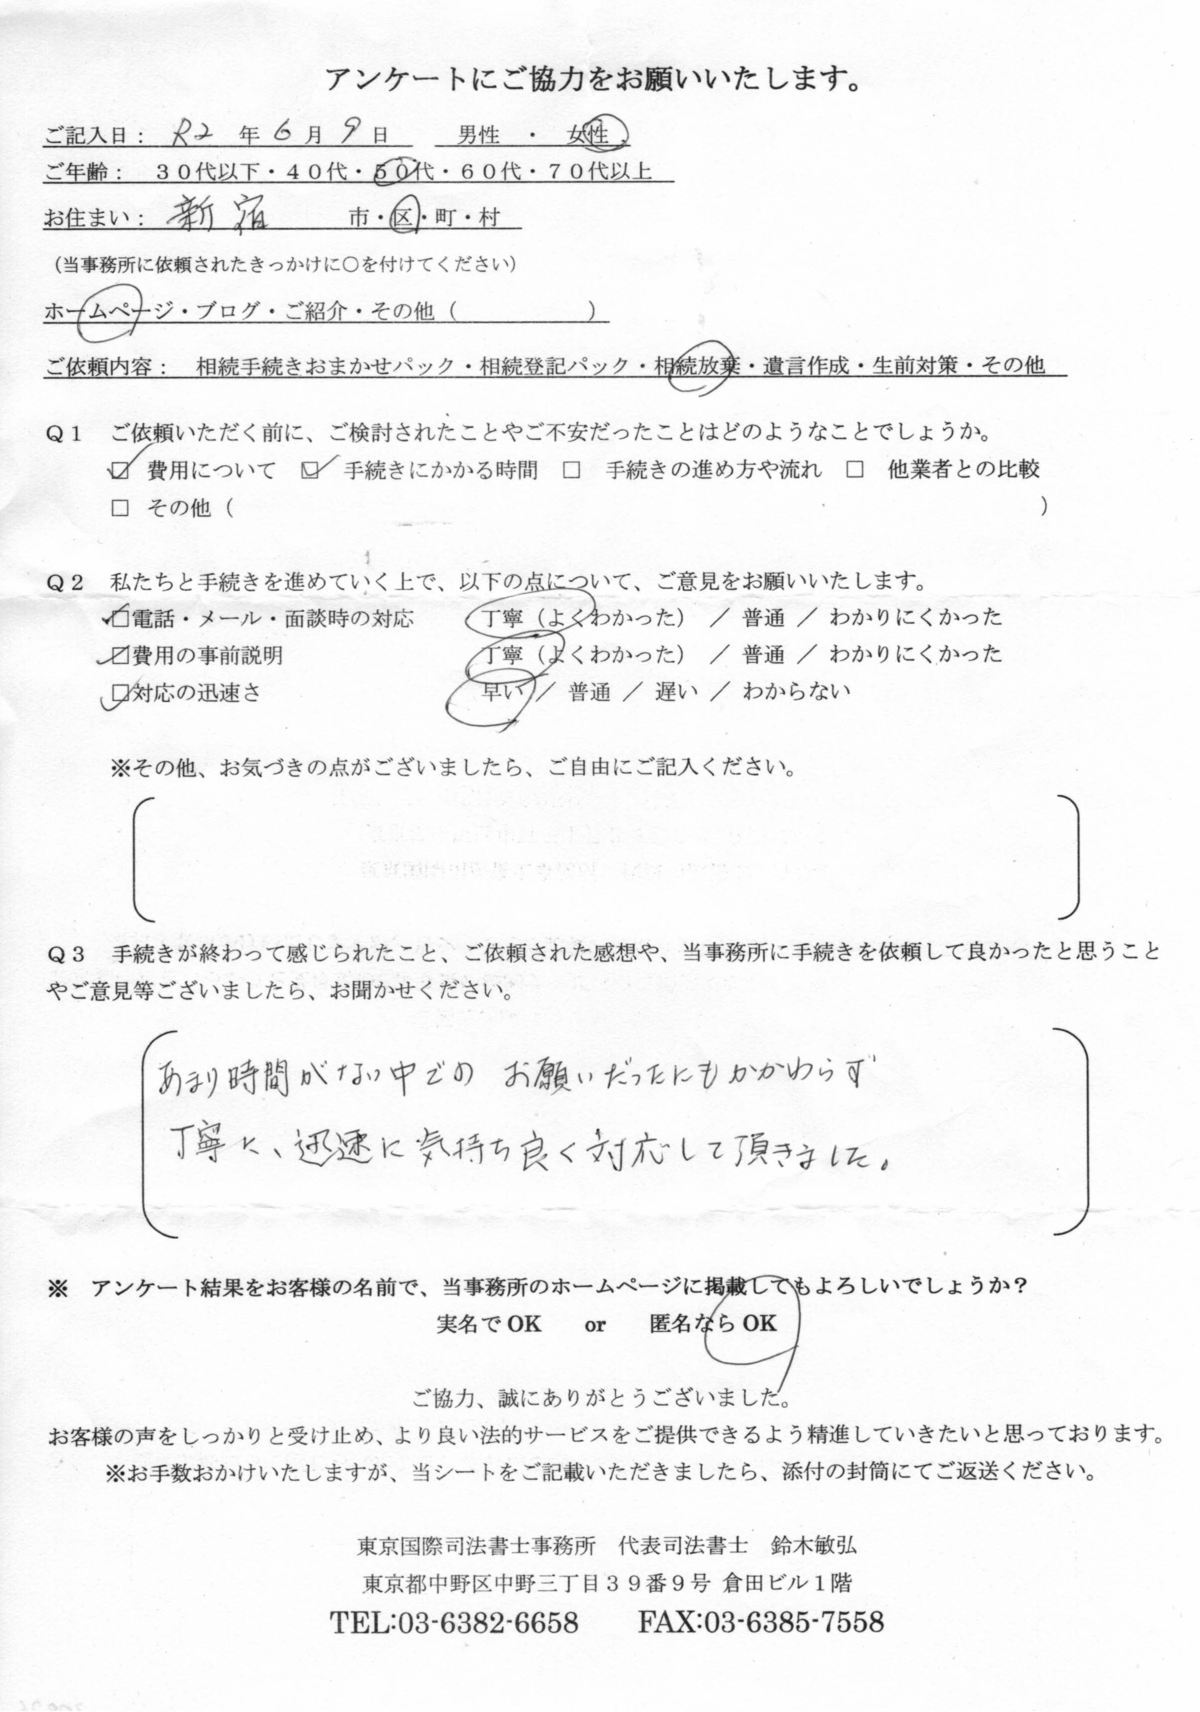 アンケートにご協力をお願いいたします。
ご記入日： R2 年 6 月 9 日　男性 ・ 女性
ご年齢：　３０代以下・４０代・５０代・６０代・７０代以上
お住まい： 新宿　市・区・町・村
（当事務所に依頼されたきっかけに○を付けてください）
ホームページ・ブログ・ご紹介・その他（　　　　　　）
ご依頼内容：　相続手続きおまかせパック・相続登記パック・相続放棄・遺言作成・生前対策・その他
Ｑ１　ご依頼いただく前に、ご検討されたことやご不安だったことはどのようなことでしょうか。
☑ 費用について　☑ 手続きにかかる時間　□ 手続きの進め方や流れ　□ 他業者との比較
□ その他（　　　　　　　　　　　　）
Ｑ２　私たちと手続きを進めていく上で、以下の点について、ご意見をお願いいたします。
☑電話・メール・面談時の対応　丁寧（よくわかった） ／ 普通 ／ わかりにくかった
☑費用の事前説明　丁寧（よくわかった） ／ 普通 ／ わかりにくかった
☑対応の迅速さ　早い ／ 普通 ／ 遅い ／ わからない
※その他、お気づきの点がございましたら、ご自由にご記入ください。
Ｑ３　手続きが終わって感じられたこと、ご依頼された感想や、当事務所に手続きを依頼して良かったと思うこと
やご意見等ございましたら、お聞かせください。
あまり時間がない中での お願いだったにもかかわらず
丁寧に、迅速に気持ち良く対応して頂きました。
※　アンケート結果をお客様の名前で、当事務所のホームページに掲載してもよろしいでしょうか？
実名で OK　or　匿名なら OK
ご協力、誠にありがとうございました。
お客様の声をしっかりと受け止め、より良い法的サービスをご提供できるよう精進していきたいと思っております。
※お手数おかけいたしますが、当シートをご記載いただきましたら、添付の封筒にてご返送ください。
東京国際司法書士事務所　代表司法書士　鈴木敏弘
東京都中野区中野三丁目３９番９号 倉田ビル１階
TEL:03-6382-6658　FAX:03-6385-7558